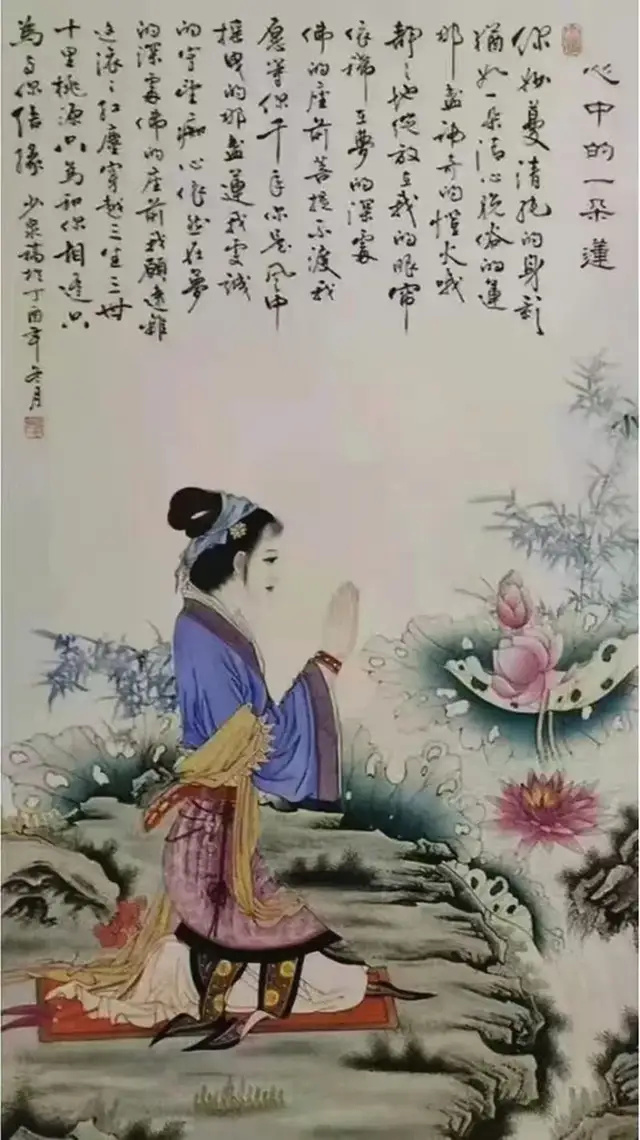 心中的一朵蓮
你妙蔓清純的身影
猶如一朵清心脫俗的蓮
那盏神奇的燈火哦
静々地绽放在我的眼帘
依稀在夢的深處
佛的座前菩提不渡我
愿等你千年你是風中
摇曳的那盏蓮我虔誠
的守望痴心依然在夢
的深處佛的座前我願遠離
这滚々红塵穿越三生三世
十里桃源只為和你相逢只
為与你结缘 少泉稿於丁酉年冬月